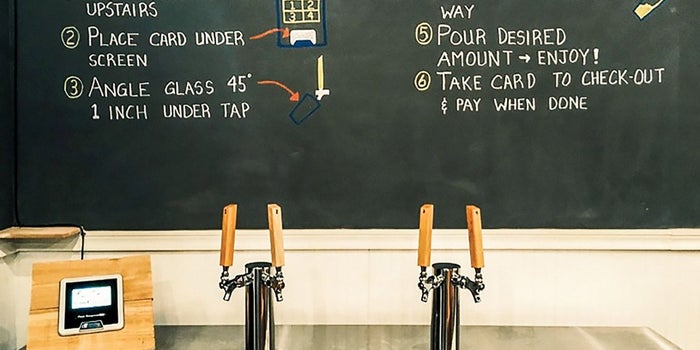 UPSTAIRS
② PLACE CARD UNDER
SCREEN
③ ANGLE GLASS 45°
1 INCH UNDER TAP
1 2
3 4
WAY
⑤ POUR DESIRED
AMOUNT → ENJOY!
⑥ TAKE CARD TO CHECK-OUT
& PAY WHEN DONE